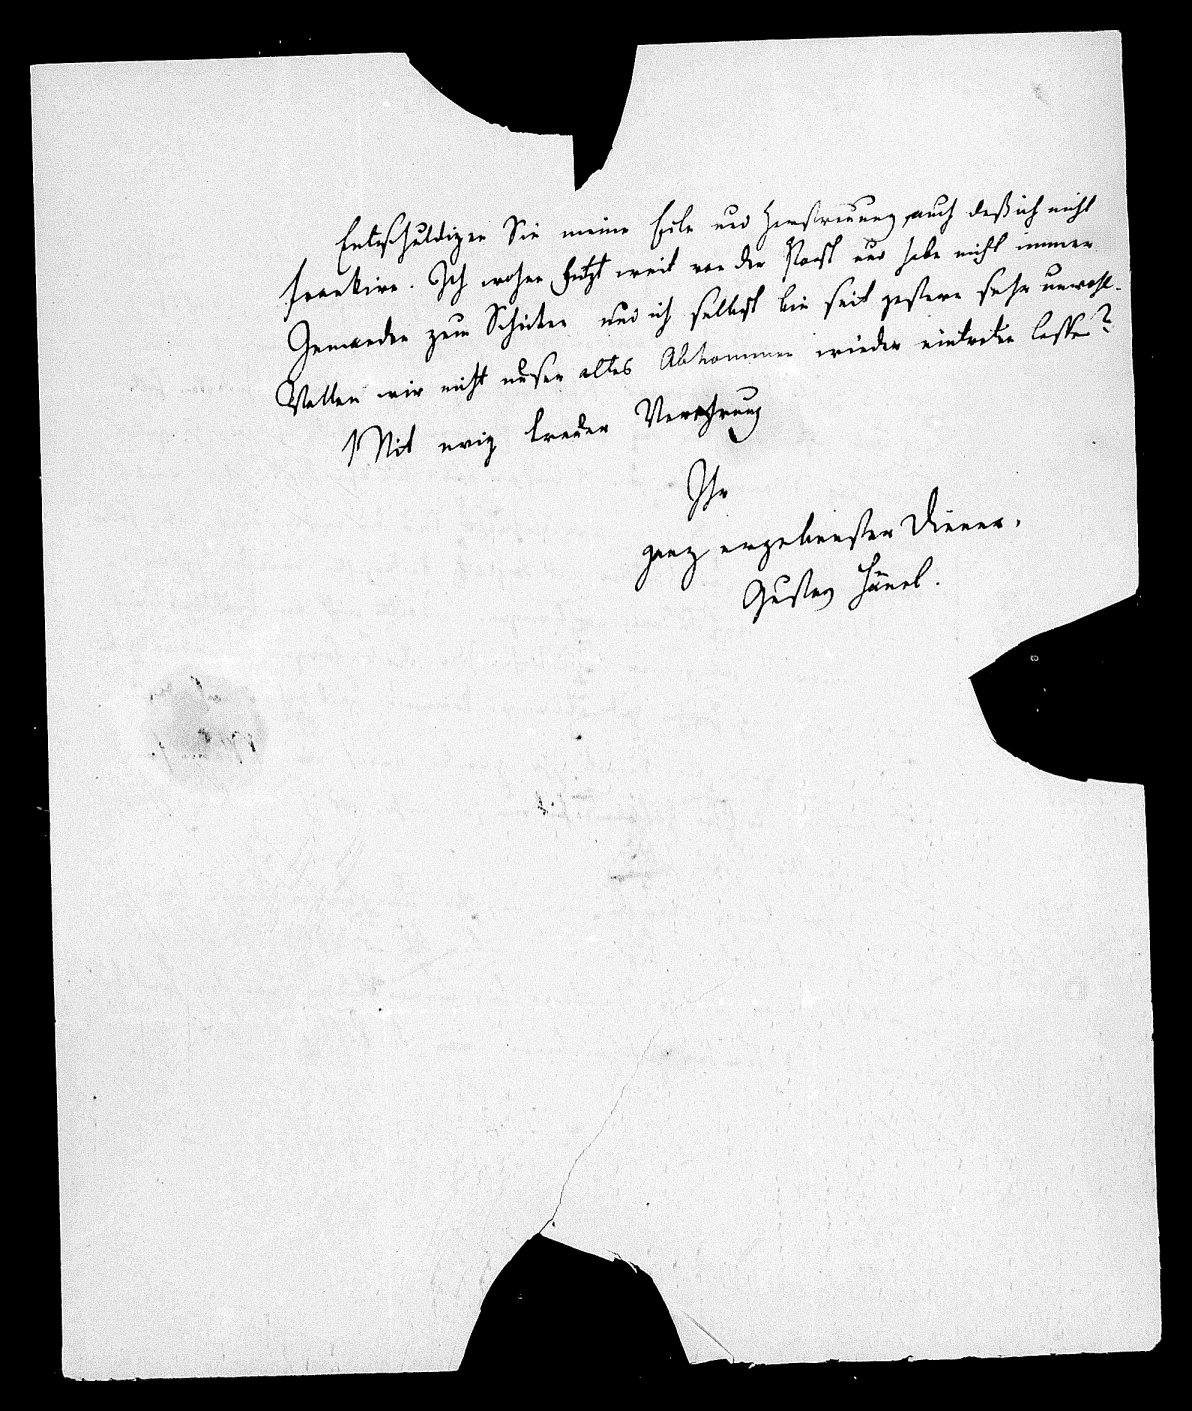 Entschuldigen Sie meine Eile und Zerstreuung, auch daß ich nicht
frankire. Ich wohne jetzt weit von der Post und habe nicht immer
Jemanden zum Schicken und ich selbst bin seit gestern sehr unwohl.
Wollen wir nicht unser altes Abkommen wieder eintreten lassen?
Mit ewig treuer Verehrung
Ihr
ganz ergebenster Diener.
Gustav Hänel.